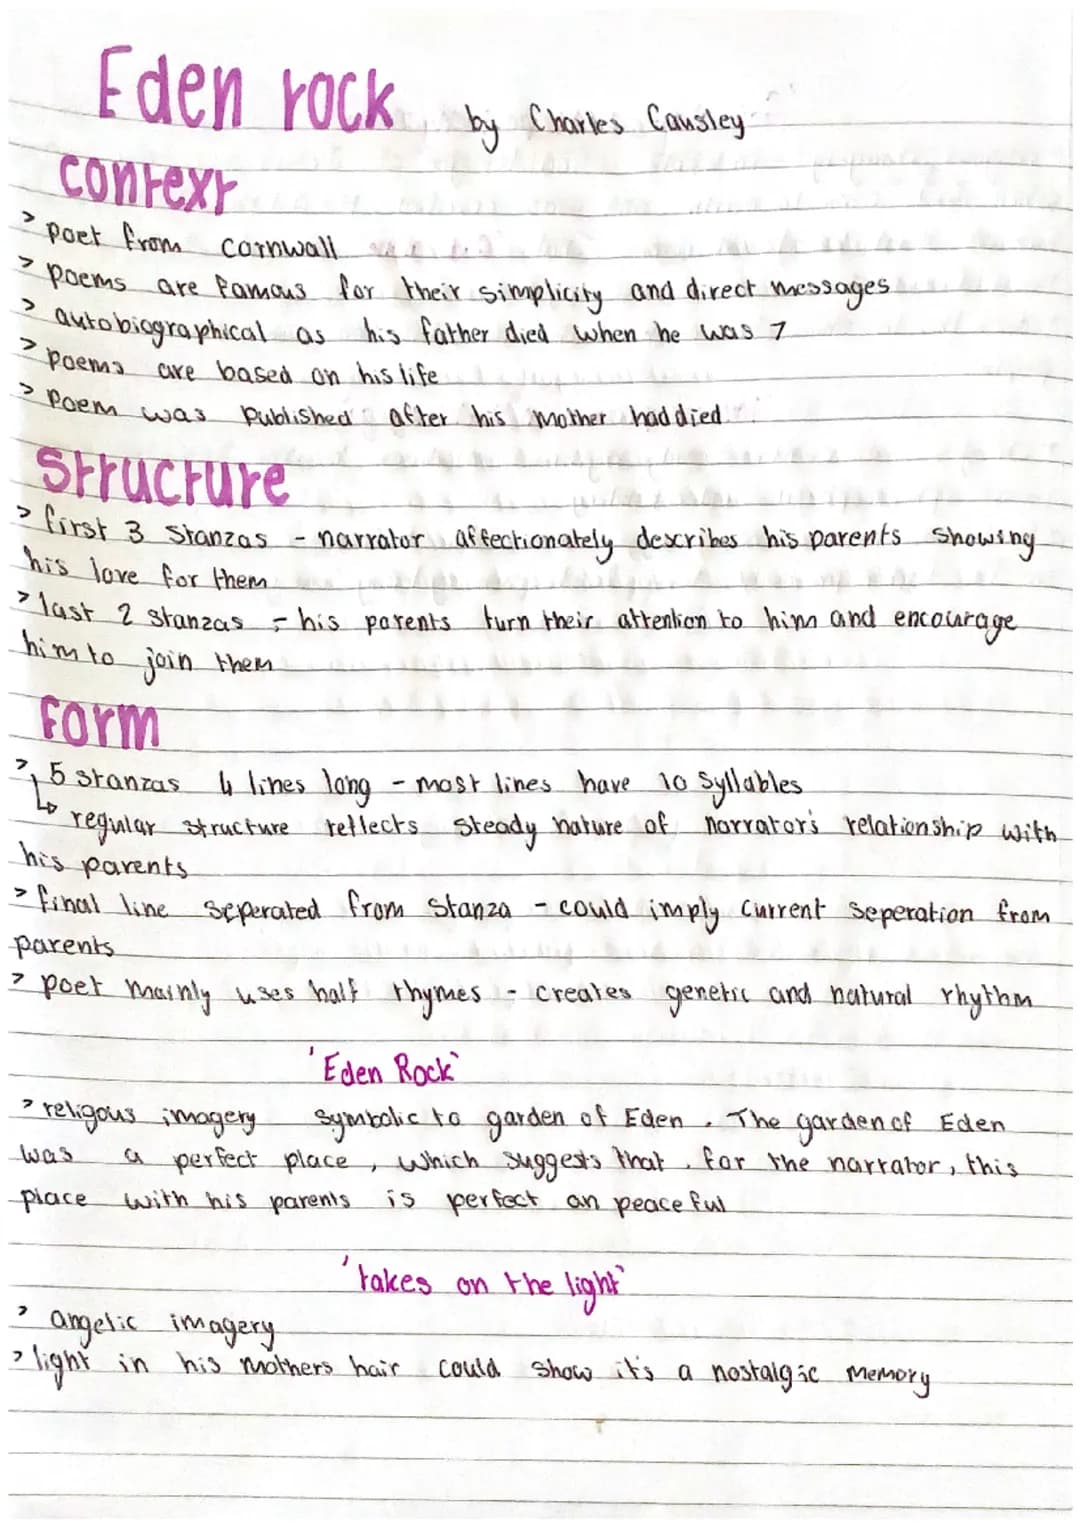 Eden rock by Charles Causley
context
> poet from cornwall
> poems are famous for their simplicity and direct messages
> autobiographical as his father died when he was 7
> poems are based on his life
> Poem was published after his mother had died.
Structure
> first 3 Stanzas - narrator affectionately describes his parents showing
his love for them
> last 2 stanzas - his parents turn their attention to him and encourage
him to join them
form
> 5 stanzas 4 lines long - most lines have 10 syllables
↳ regular structure reflects steady nature of narrator's relationship with
his parents
> final line seperated from stanza - could imply current seperation from
parents
> poet mainly uses half rhymes - creates genetic and natural rhythm
'Eden Rock'
> religous imagery symbolic to garden of Eden. The garden of Eden
was a perfect place, which suggests that, for the narrator, this
place with his parents is perfect an peaceful
'takes on the light'
> angelic imagery
> light in his mothers hair could show it's a nostalgic memory